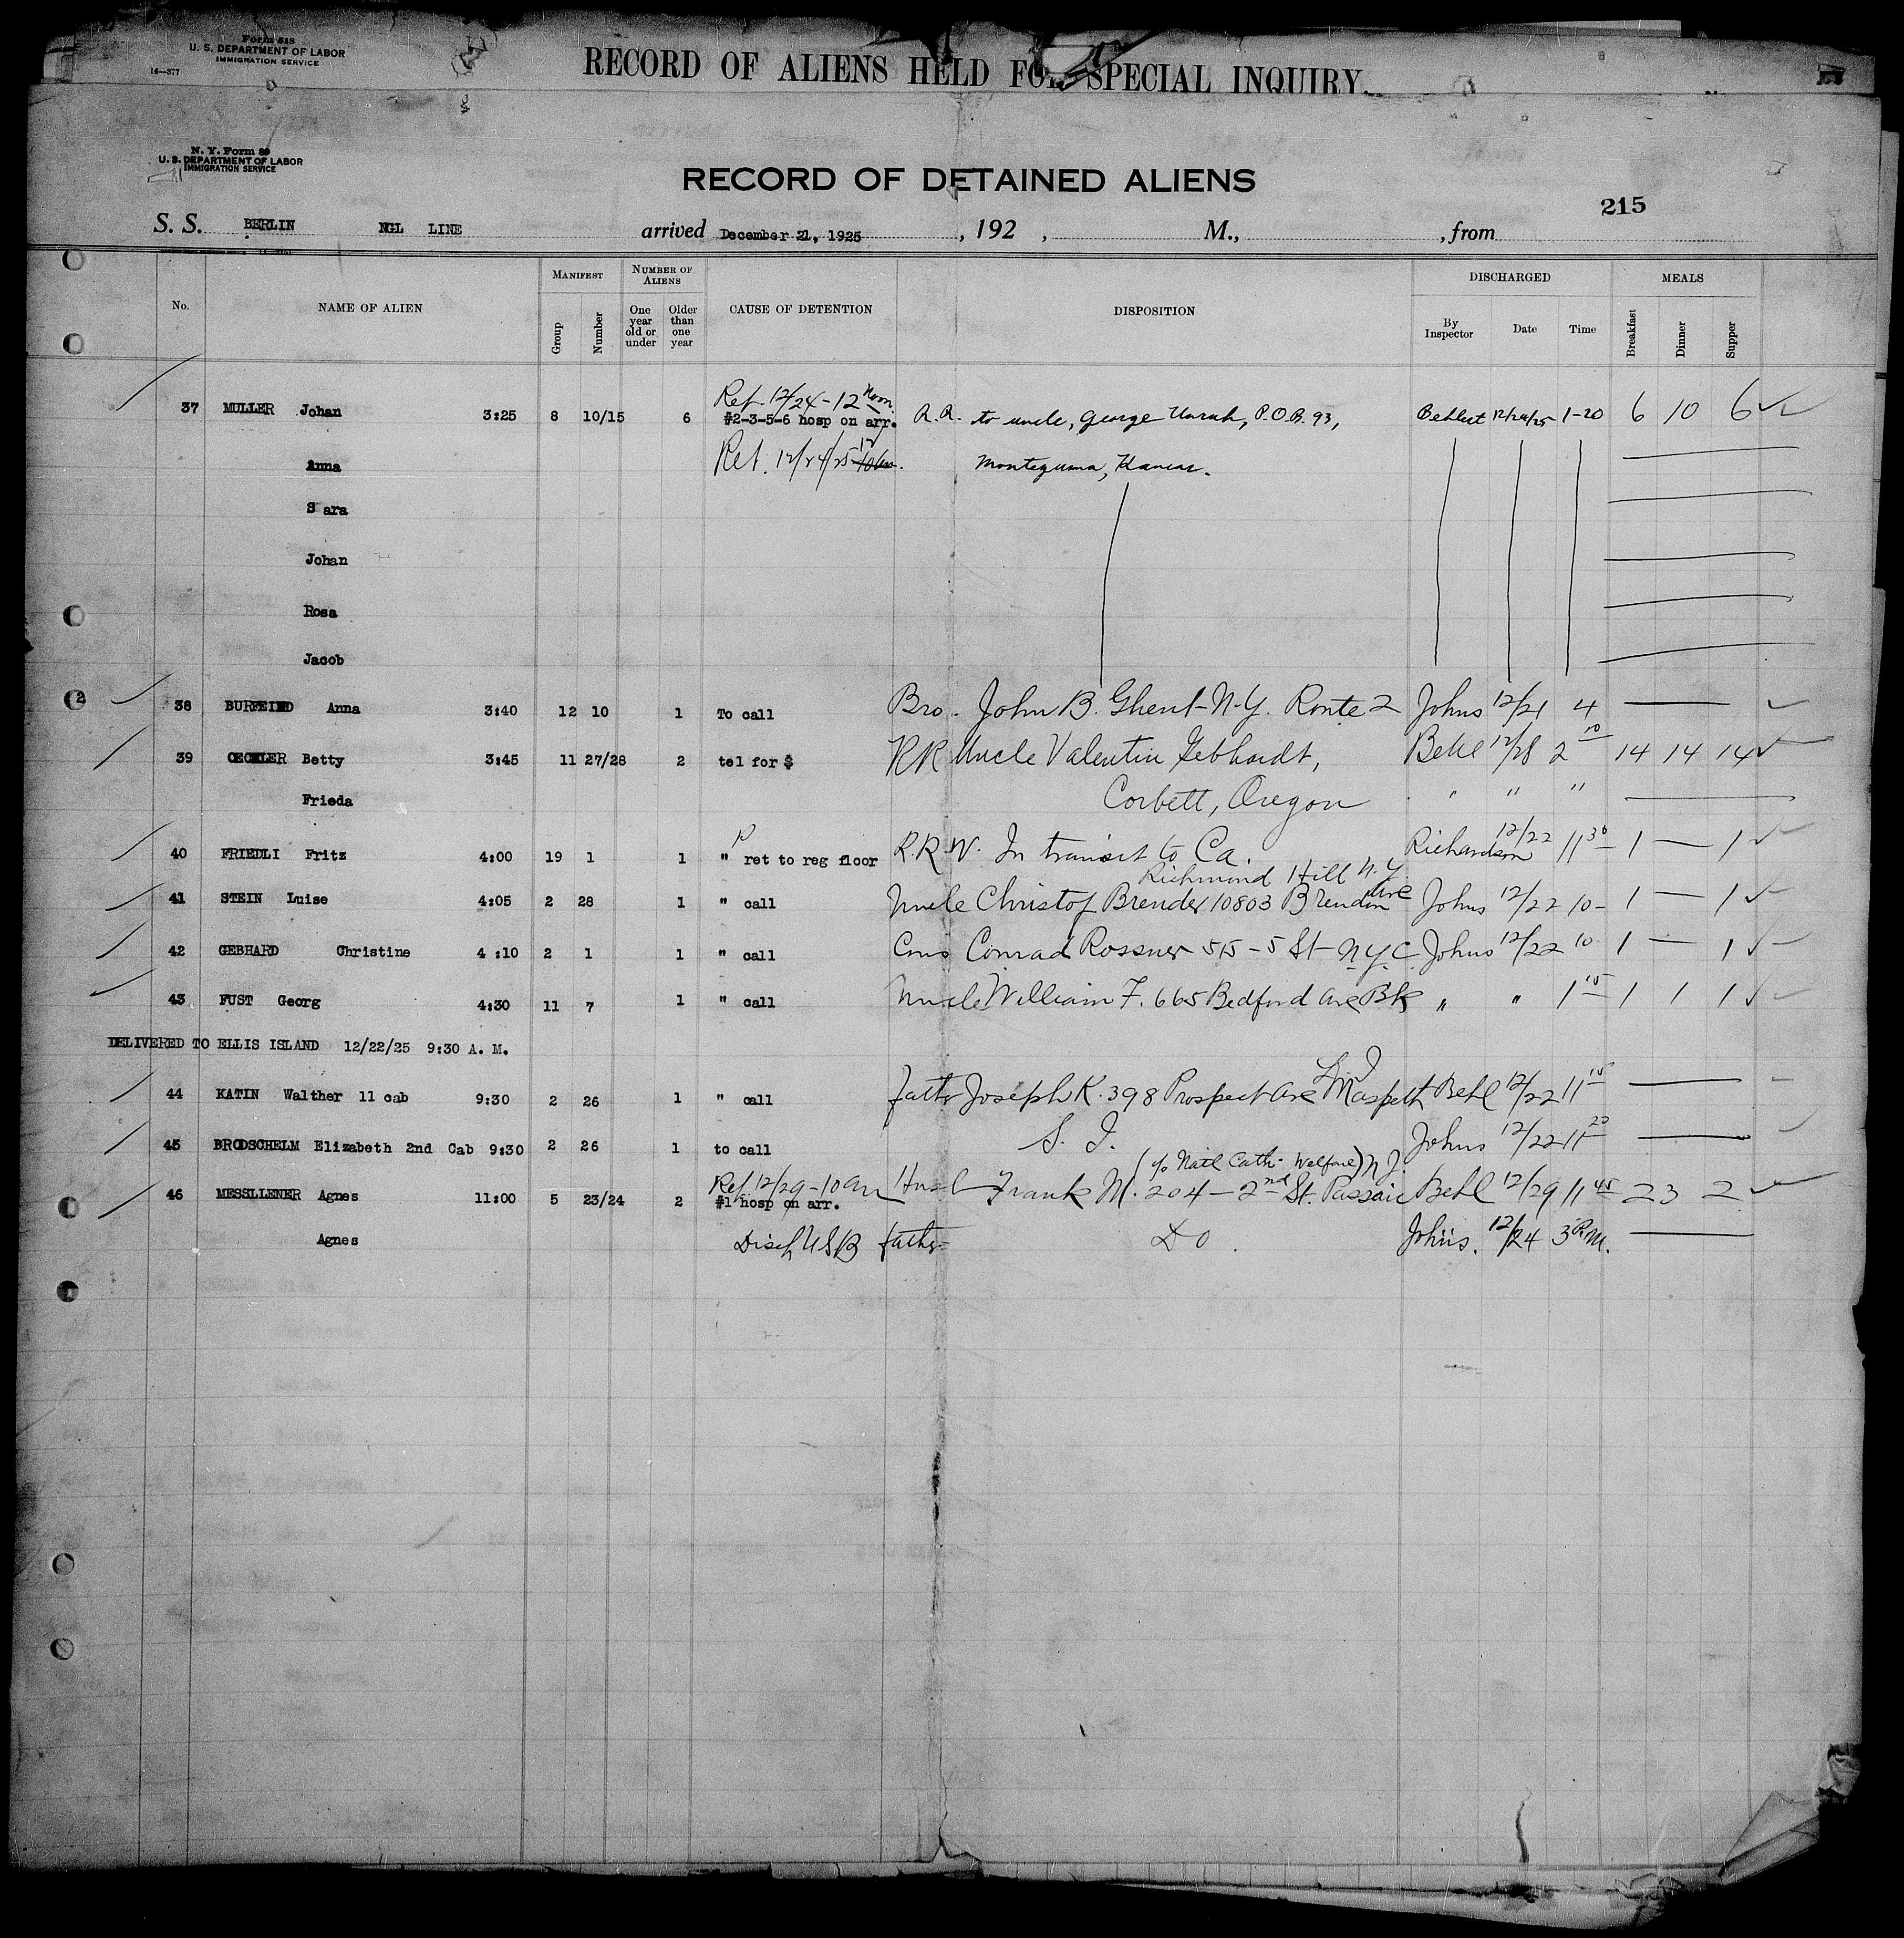 Form 518
U. S. DEPARTMENT OF LABOR
IMMIGRATION SERVICE
14—377
RECORD OF ALIENS HELD FOR SPECIAL INQUIRY.
N. Y. Form 89
U. S. DEPARTMENT OF LABOR
IMMIGRATION SERVICE
RECORD OF DETAINED ALIENS
215
S. S. BERLIN NGL LINE arrived December 21, 1925, 192 , M., , from
No. NAME OF ALIEN MANIFEST Group Number NUMBER OF ALIENS One year old or under Older than one year CAUSE OF DETENTION DISPOSITION DISCHARGED By Inspector Date Time MEALS Breakfast Dinner Supper
Ret. 12/24-12 Noon
37 MULLER Johan 3:25 8 10/15 6 #2-3-5-6 hosp on arr. R.R. to uncle, George Unruh, P.O.B. 93, 12/24/25 1-20 6 10 6
Anna Ret. 12/24/25 12 Montezuma, Kansas.
Sara
Johan
Rosa
Jacob
2
38 BURFEIND Anna 3:40 12 10 1 To call Bro. John B. Ghent-N-Y. Route 2 Johns 12/21 4
39 OECHLER Betty 3:45 11 27/28 2 tel for $ RR Uncle Valentin Gebhardt, 12/28 2 10 14 14 14
Frieda Corbett, Oregon " " "
40 FRIEDLI Fritz 4:00 19 1 1 " ret to reg floor R.R.W. In transit to Ca. Richardson 12/22 11 30 1 — 1
Richmond Hill N.Y.
41 STEIN Luise 4:05 2 28 1 " call Uncle Christof Brender 10803 Ave Johns 12/22 10- 1 — 1
42 GEBHARD Christine 4:10 2 1 1 " call Cous Conrad Rossner 515-5 St-N.Y.C. Johns 12/22 10 1 — 1
43 FUST Georg 4:30 11 7 1 " call Uncle William F. 665 Bedford Ave Bk " " 1 15 1 1 1
DELIVERED TO ELLIS ISLAND 12/22/25 9:30 A. M.
L I
44 KATIN Walther 11 cab 9:30 2 26 1 " call Father Joseph K. 398 Prospect Ave Maspeth Behl 12/22 11 15
45 BRODSCHELM Elizabeth 2nd Cab 9:30 2 26 1 to call S. I. Johns 12/22 11 20
Ret 12/29-10 am (c/o Natl Cath. Welfare) N.J.
46 MESSLLENER Agnes 11:00 5 23/24 2 #1 hosp on arr. Husb Frank M. 204-2nd St. Passaic Behl 12/29 11 45 2 3 2
Agnes Disch father DO. Johns. 12/24 3 P.M.